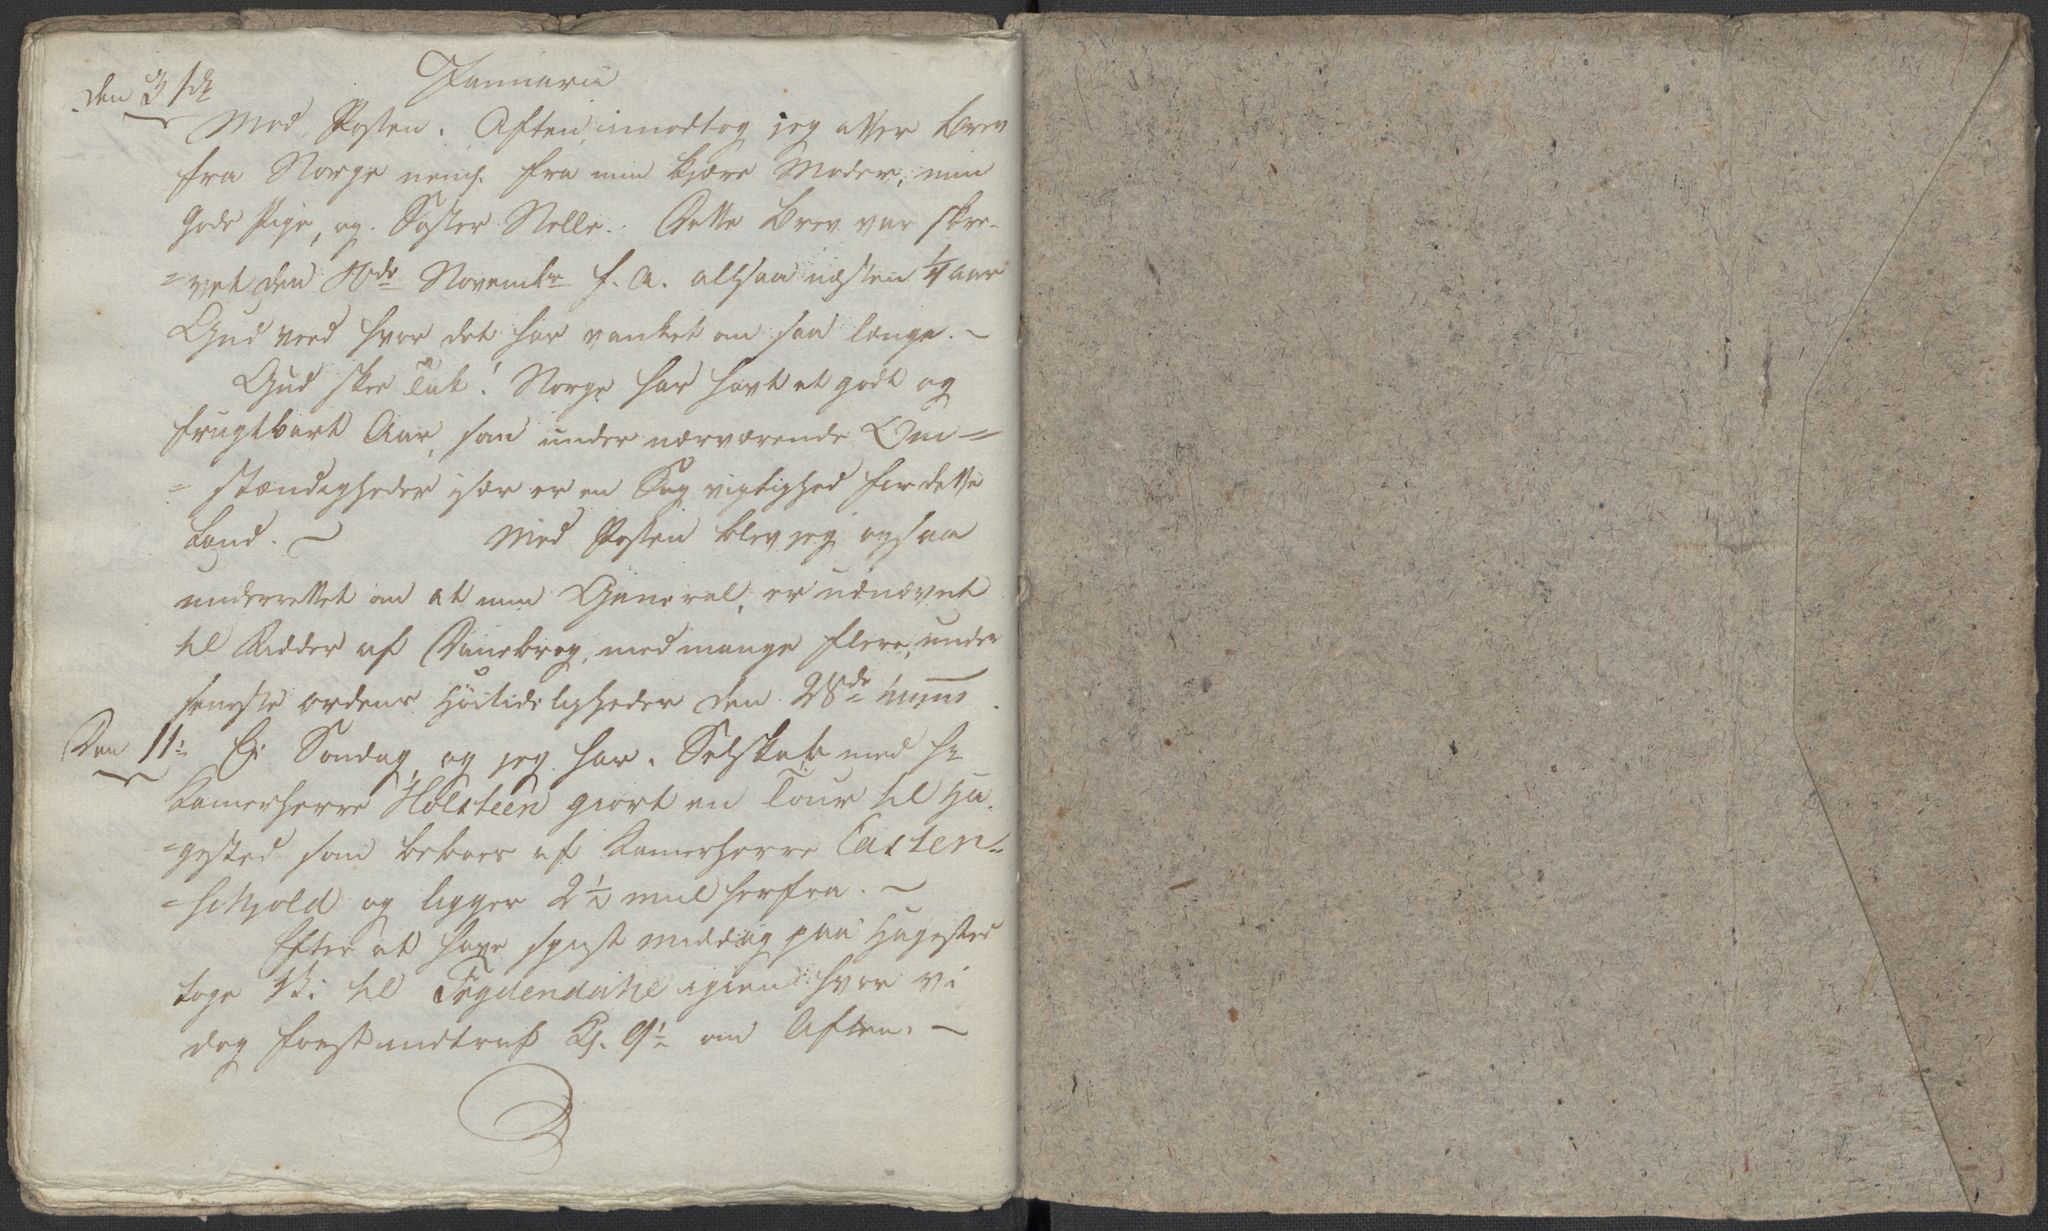 Januarii
den 3die
Med Posten i Aften imodtog jeg atter Brev
fra Norge neml. fra min kjære Moder, min
gode Pige, og Søster Nelle. Dette Brev var skre-
=vet den 10de Novembr f. A. altsaa næsten 1/4 aar
Gud veed hvor det har vanket om saa længe. –
Gud skee Tak! Norge har havt et godt og
frugtbart Aar, som under nærværende Om=
=stændigheder især er en Sag vigtighed for dette
Land. – Med Posten blev jeg ogsaa
underrettet om at min General, er udnævnt
til Ridder af Danebrog, med mange flere, under
seneste ordens Høitideligheder den 28de
Den 11te Er Søndag og jeg har i Selskab med Hr
Kamerherre Holsteen giort en Tour til Ha-
=gested som beboes af Kamerherre Casten-
=schjold og ligger 2½ miil herfra. –
Efter at have spiist middag paa Hagested
toge Vi til Frydendahl igien hvor vi
dog først indtraf Kl. 9te om Aften. –